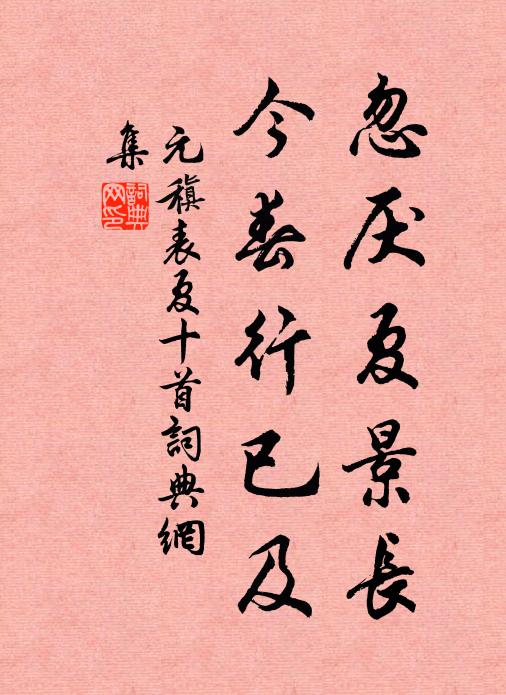 忽厌夏景長
今春行已及
元稹表夏十首詞典網
集
詞典
网印